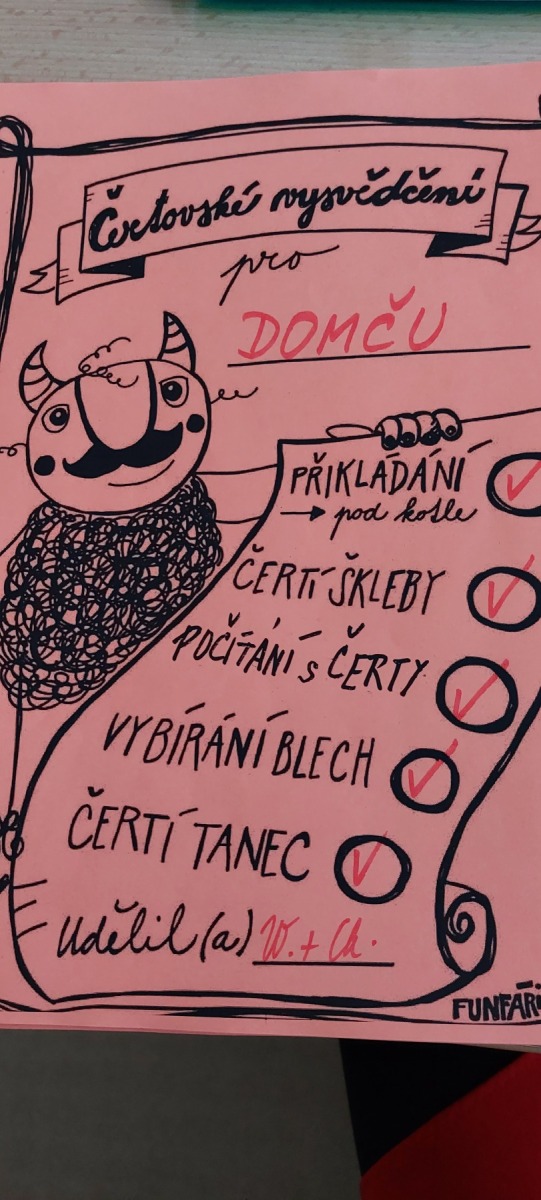 Čertovské vysvědčení
pro
DOMČU
PŘIKLÁDÁNÍ
→ pod kotle
ČERTÍ ŠKLEBY
POČÍTÁNÍ s ČERTY
VYBÍRÁNÍ BLECH
ČERTÍ TANEC
Udělil(a) W. + Ch.
FUNFÁŘI